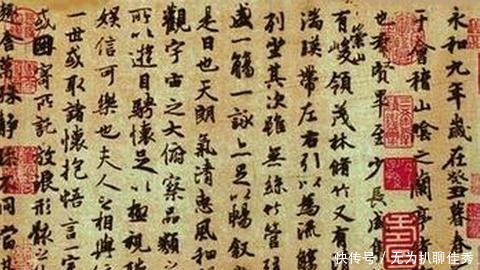 永和九年歲在癸丑暮春
于會稽山陰之蘭亭
也羣賢畢至少長咸
崇山
有峻領茂林脩竹又有
湍暎帶左右引以為流觴
列坐其次雖無絲竹管
盛一觴一詠亦足以暢叙
是日也天朗氣清惠風和
觀宇宙之大俯察品類之
所以遊目騁懷足以極視
娛信可樂也夫人之相與
一世或取諸懷抱悟言室
或因寄所託放浪形骸之
趣舍萬殊靜躁不同當其
快传号/无为扒聊佳秀